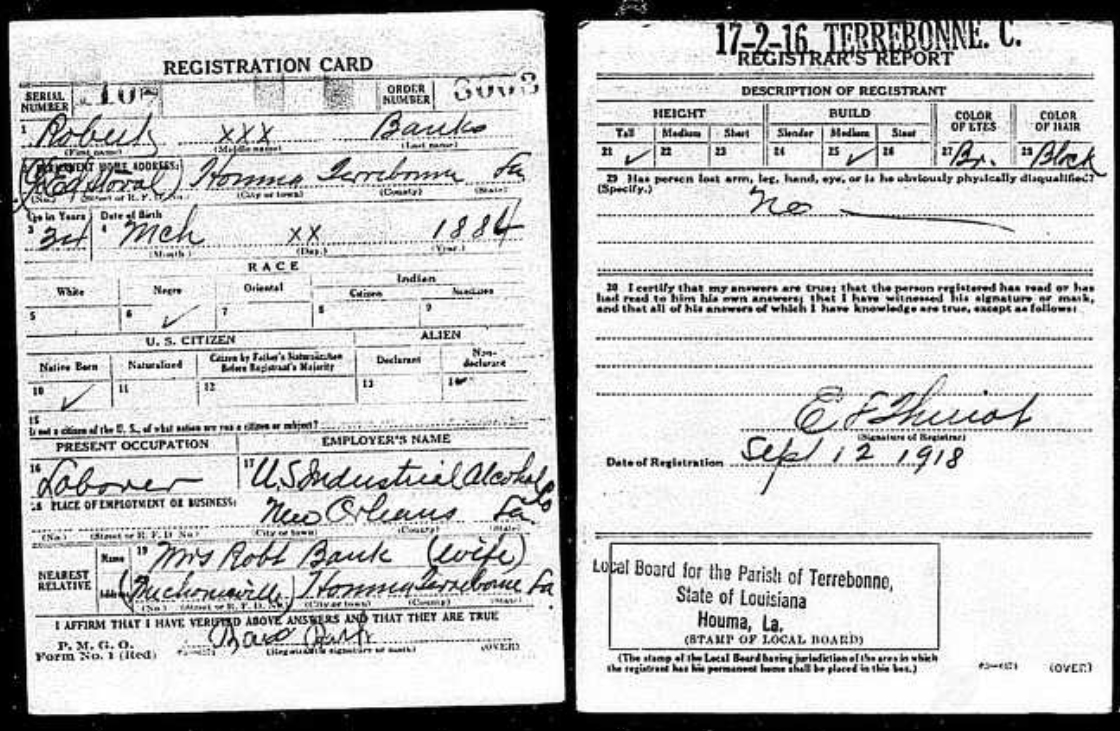 REGISTRATION CARD
SERIAL NUMBER
ORDER NUMBER
1 Robert xxx Banks
(First name) (Middle name) (Last name)
2 PERMANENT HOME ADDRESS:
Houma Terrebonne La
(No.) (Street or R. F. D. No.) (City or town) (County) (State)
Age in Years Date of Birth
3 34 4 Mch xx 1884
(Month) (Day) (Year)
RACE
White Negro Oriental Indian
Citizen Noncitizen
5 6 ✓ 7 8 9
U. S. CITIZEN ALIEN
Native Born Naturalized Citizen by Father's Naturalization Before Registrant's Majority Declarant Non-declarant
10 ✓ 11 12 13 14
15
If not a citizen of the U. S., of what nation are you a citizen or subject?
PRESENT OCCUPATION EMPLOYER'S NAME
16 Laborer 17 U.S Industrial Alcohol Co
18 PLACE OF EMPLOYMENT OR BUSINESS:
New Orleans La
(No.) (Street or R. F. D. No.) (City or town) (County) (State)
NEAREST RELATIVE
Name 19 Mrs Robt Bank (wife)
Address Houma Terrebonne La
(No.) (Street or R. F. D. No.) (City or town) (County) (State)
I AFFIRM THAT I HAVE VERIFIED ABOVE ANSWERS AND THAT THEY ARE TRUE
P. M. G. O.
Form No. 1 (Red) (Registrant's signature or mark) (OVER)
17-2-16 TERREBONNE. C.
REGISTRAR'S REPORT
DESCRIPTION OF REGISTRANT
HEIGHT BUILD COLOR OF EYES COLOR OF HAIR
Tall Medium Short Slender Medium Stout
21 ✓ 22 23 24 25 ✓ 26 27 Br. 28 Black
29 Has person lost arm, leg, hand, eye, or is he obviously physically disqualified?
(Specify.)
No
30 I certify that my answers are true; that the person registered has read or has
had read to him his own answers; that I have witnessed his signature or mark,
and that all of his answers of which I have knowledge are true, except as follows:
(Signature of Registrar)
Date of Registration Sept 12 1918
Local Board for the Parish of Terrebonne,
State of Louisiana
Houma, La.
(STAMP OF LOCAL BOARD)
(The stamp of the Local Board having jurisdiction of the area in which
the registrant has his permanent home shall be placed in this box.)
(OVER)